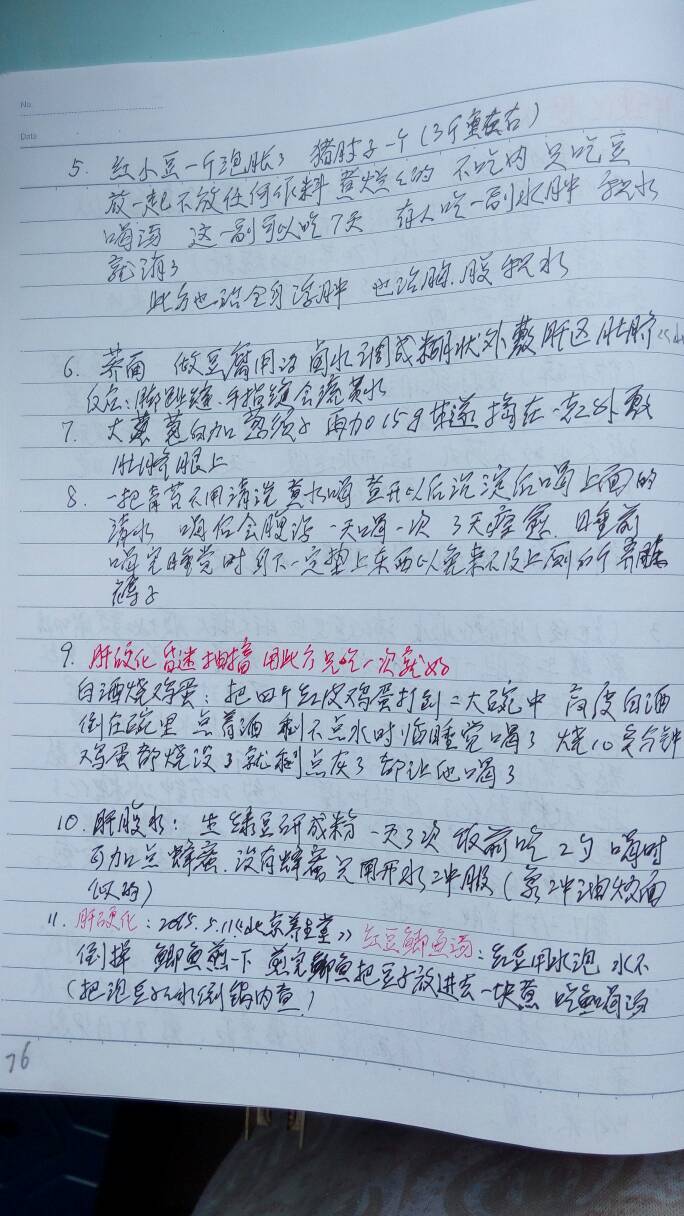 No.
Date
5. 红小豆一斤泡胀了 猪肘子一个(3斤重左右)
放一起不放任何作料 煮烂乙的 不吃肉 只吃豆
喝汤 这一副可以吃7天 有人吃一副水肿 积水
就消了
此方也治全身浮肿 也治胸.腹积水
6. 荞面 做豆腐用的卤水调成糊状外敷肝区 肚脐
反应:脚趾缝.手指缝会流黄水
7. 大葱葱白加葱须子 再加0.15g甘遂 捣在一起外敷
肚脐眼上
8. 一把青苔不用清洗 煮水喝 煮开以后沉淀后喝上面的
清水 喝后会腹泻 一天喝一次 3天痊愈. 睡前
喝完睡觉时身下一定垫上东西以免来不及上厕所弄脏
裤子
9. 肝硬化 昏迷 抽搐 用此方只吃一次就好
白酒烧鸡蛋: 把四个红皮鸡蛋打到二大碗中 高度白酒
倒在碗里 点着酒 剩不点水时临睡觉喝了 烧10多分钟
鸡蛋都烧没了 就剩点灰了 都让他喝了
10. 肝腹水: 生绿豆研成粉 一天3次 饭前吃2勺 喝时
可加点蜂蜜. 没有蜂蜜只用开水冲服(象冲油炒面
似的)
11. 肝硬化: 2015.5.11《北京养生堂》红豆鲫鱼汤: 红豆用水泡 水不
倒掉 鲫鱼煎一下 煎完鲫鱼把豆子放进去一块煮 吃鱼喝汤
(把泡豆子的水倒锅内煮!)
76